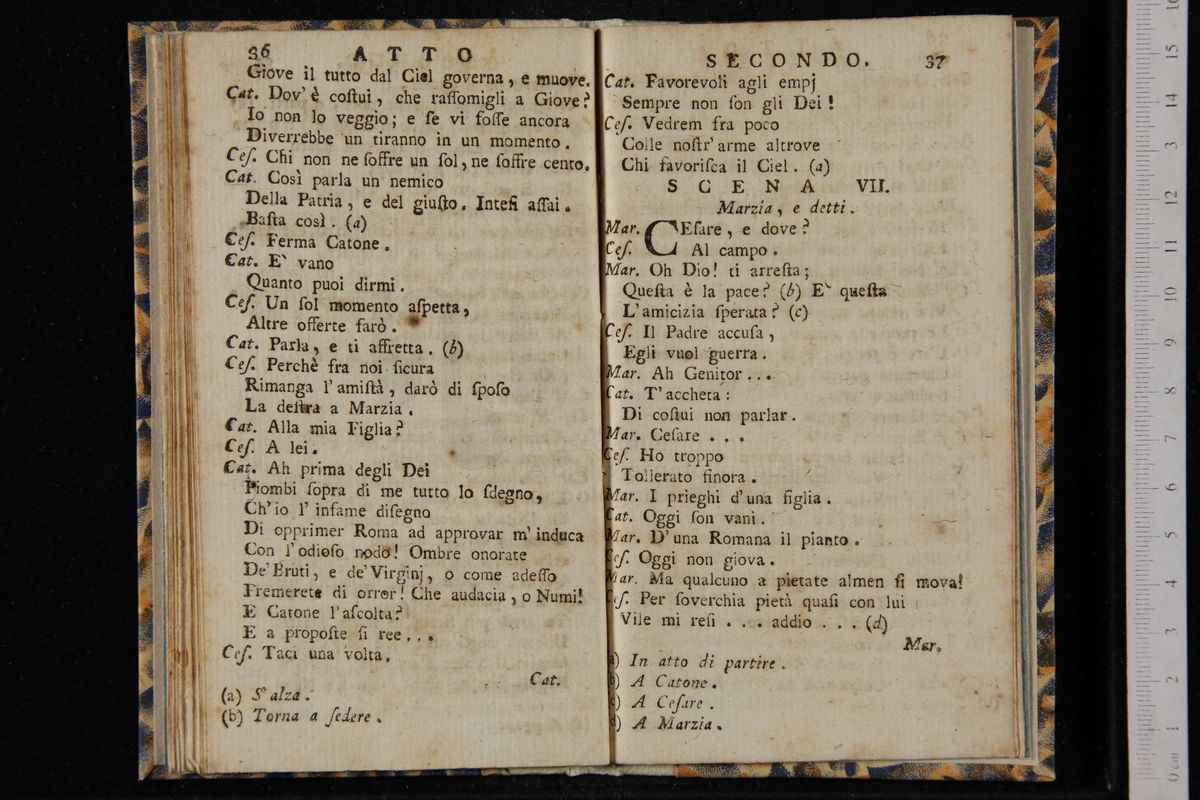 36 ATTO
Giove il tutto dal Ciel governa, e muove.
Cat. Dov' è coſtui, che raſſomigli a Giove?
Io non lo veggio; e ſe vi foſſe ancora
Diverrebbe un tiranno in un momento.
Ceſ. Chi non ne ſoffre un ſol, ne ſoffre cento.
Cat. Così parla un nemico
Della Patria, e del giuſto. Inteſi aſſai.
Baſta così. (a)
Ceſ. Ferma Catone.
Cat. E` vano
Quanto puoi dirmi.
Ceſ. Un ſol momento aſpetta,
Altre offerte farò.
Cat. Parla, e ti affretta. (b)
Ceſ. Perchè fra noi ſicura
Rimanga l'amiſtà, darò di ſpoſo
La deſtra a Marzia.
Cat. Alla mia Figlia?
Ceſ. A lei.
Cat. Ah prima degli Dei
Piombi ſopra di me tutto lo ſdegno,
Ch'io l' infame diſegno
Di opprimer Roma ad approvar m'induca
Con l'odioſo nodo! Ombre onorate
De'Bruti, e de'Virginj, o come adeſſo
Fremerete di orror! Che audacia, o Numi!
E Catone l'aſcolta?
E a propoſte ſi ree...
Ceſ. Taci una volta.
Cat.
(a) S'alza.
(b) Torna a ſedere.
SECONDO. 37
Cat. Favorevoli agli empj
Sempre non ſon gli Dei!
Ceſ. Vedrem fra poco
Colle noſtr' arme altrove
Chi favoriſca il Ciel. (a)
SCENA VII.
Marzia, e detti.
Mar. CEſare, e dove?
Ceſ. Al campo.
Mar. Oh Dio! ti arreſta;
Queſta è la pace? (b) E` queſta
L'amicizia ſperata? (c)
Ceſ. Il Padre accuſa,
Egli vuol guerra.
Mar. Ah Genitor...
Cat. T'accheta:
Di coſtui non parlar.
Mar. Ceſare...
Ceſ. Ho troppo
Tollerato finora.
Mar. I prieghi d'una figlia.
Cat. Oggi ſon vani.
Mar. D'una Romana il pianto.
Ceſ. Oggi non giova.
Mar. Ma qualcuno a pietate almen ſi mova!
Ceſ. Per ſoverchia pietà quaſi con lui
Vile mi reſi... addio... (d)
Mar.
a) In atto di partire.
b) A Catone.
c) A Ceſare.
d) A Marzia.
0 cm 1 2 3 4 5 6 7 8 9 10 11 12 13 14 15 16